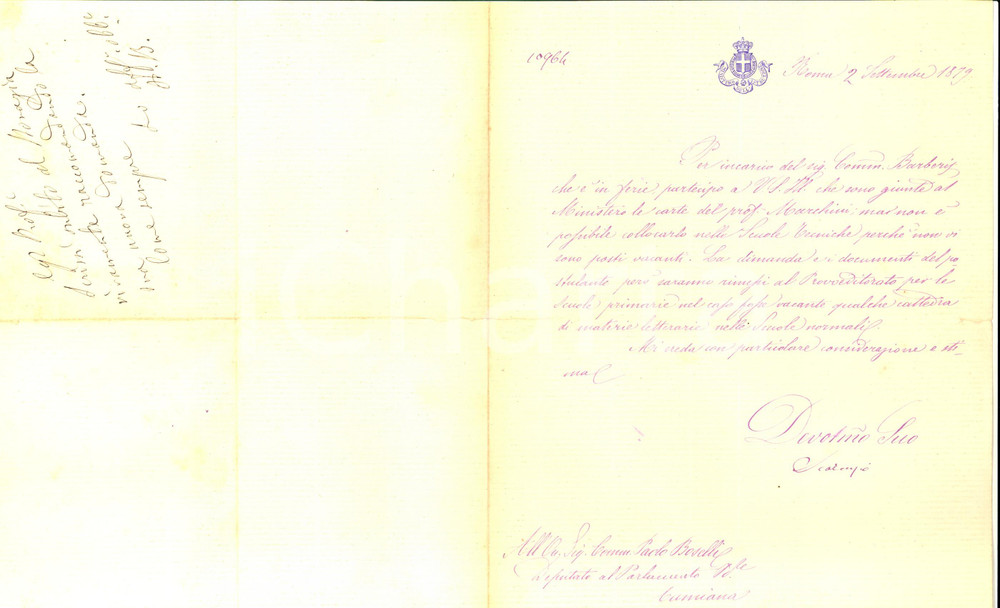 10964
Roma 2 Settembre 1879
Per incarico del sig. Comm. Barberis
che è in ferie partecipo a V. S. Ill. che sono giunte al
Ministero le carte del prof. Marchini, ma non è
possibile collocarlo nelle Scuole tecniche perchè non vi
sono posti vacanti. La dimanda e i documenti del po
stulante però saranno riunpi al Provveditorato per le
Scuole primarie nel caso fosse vacante qualche cattedra
di materie letterarie nelle Scuole normali.
Mi creda con particolare considerazione e sti-
ma
Devotmo Suo
All'On. Sig. Comm. Paolo Boselli
Deputato al Parlamento
Cumiana
Egr. Prof.
subito al
vivamente raccomando.
nuova
Come sempre